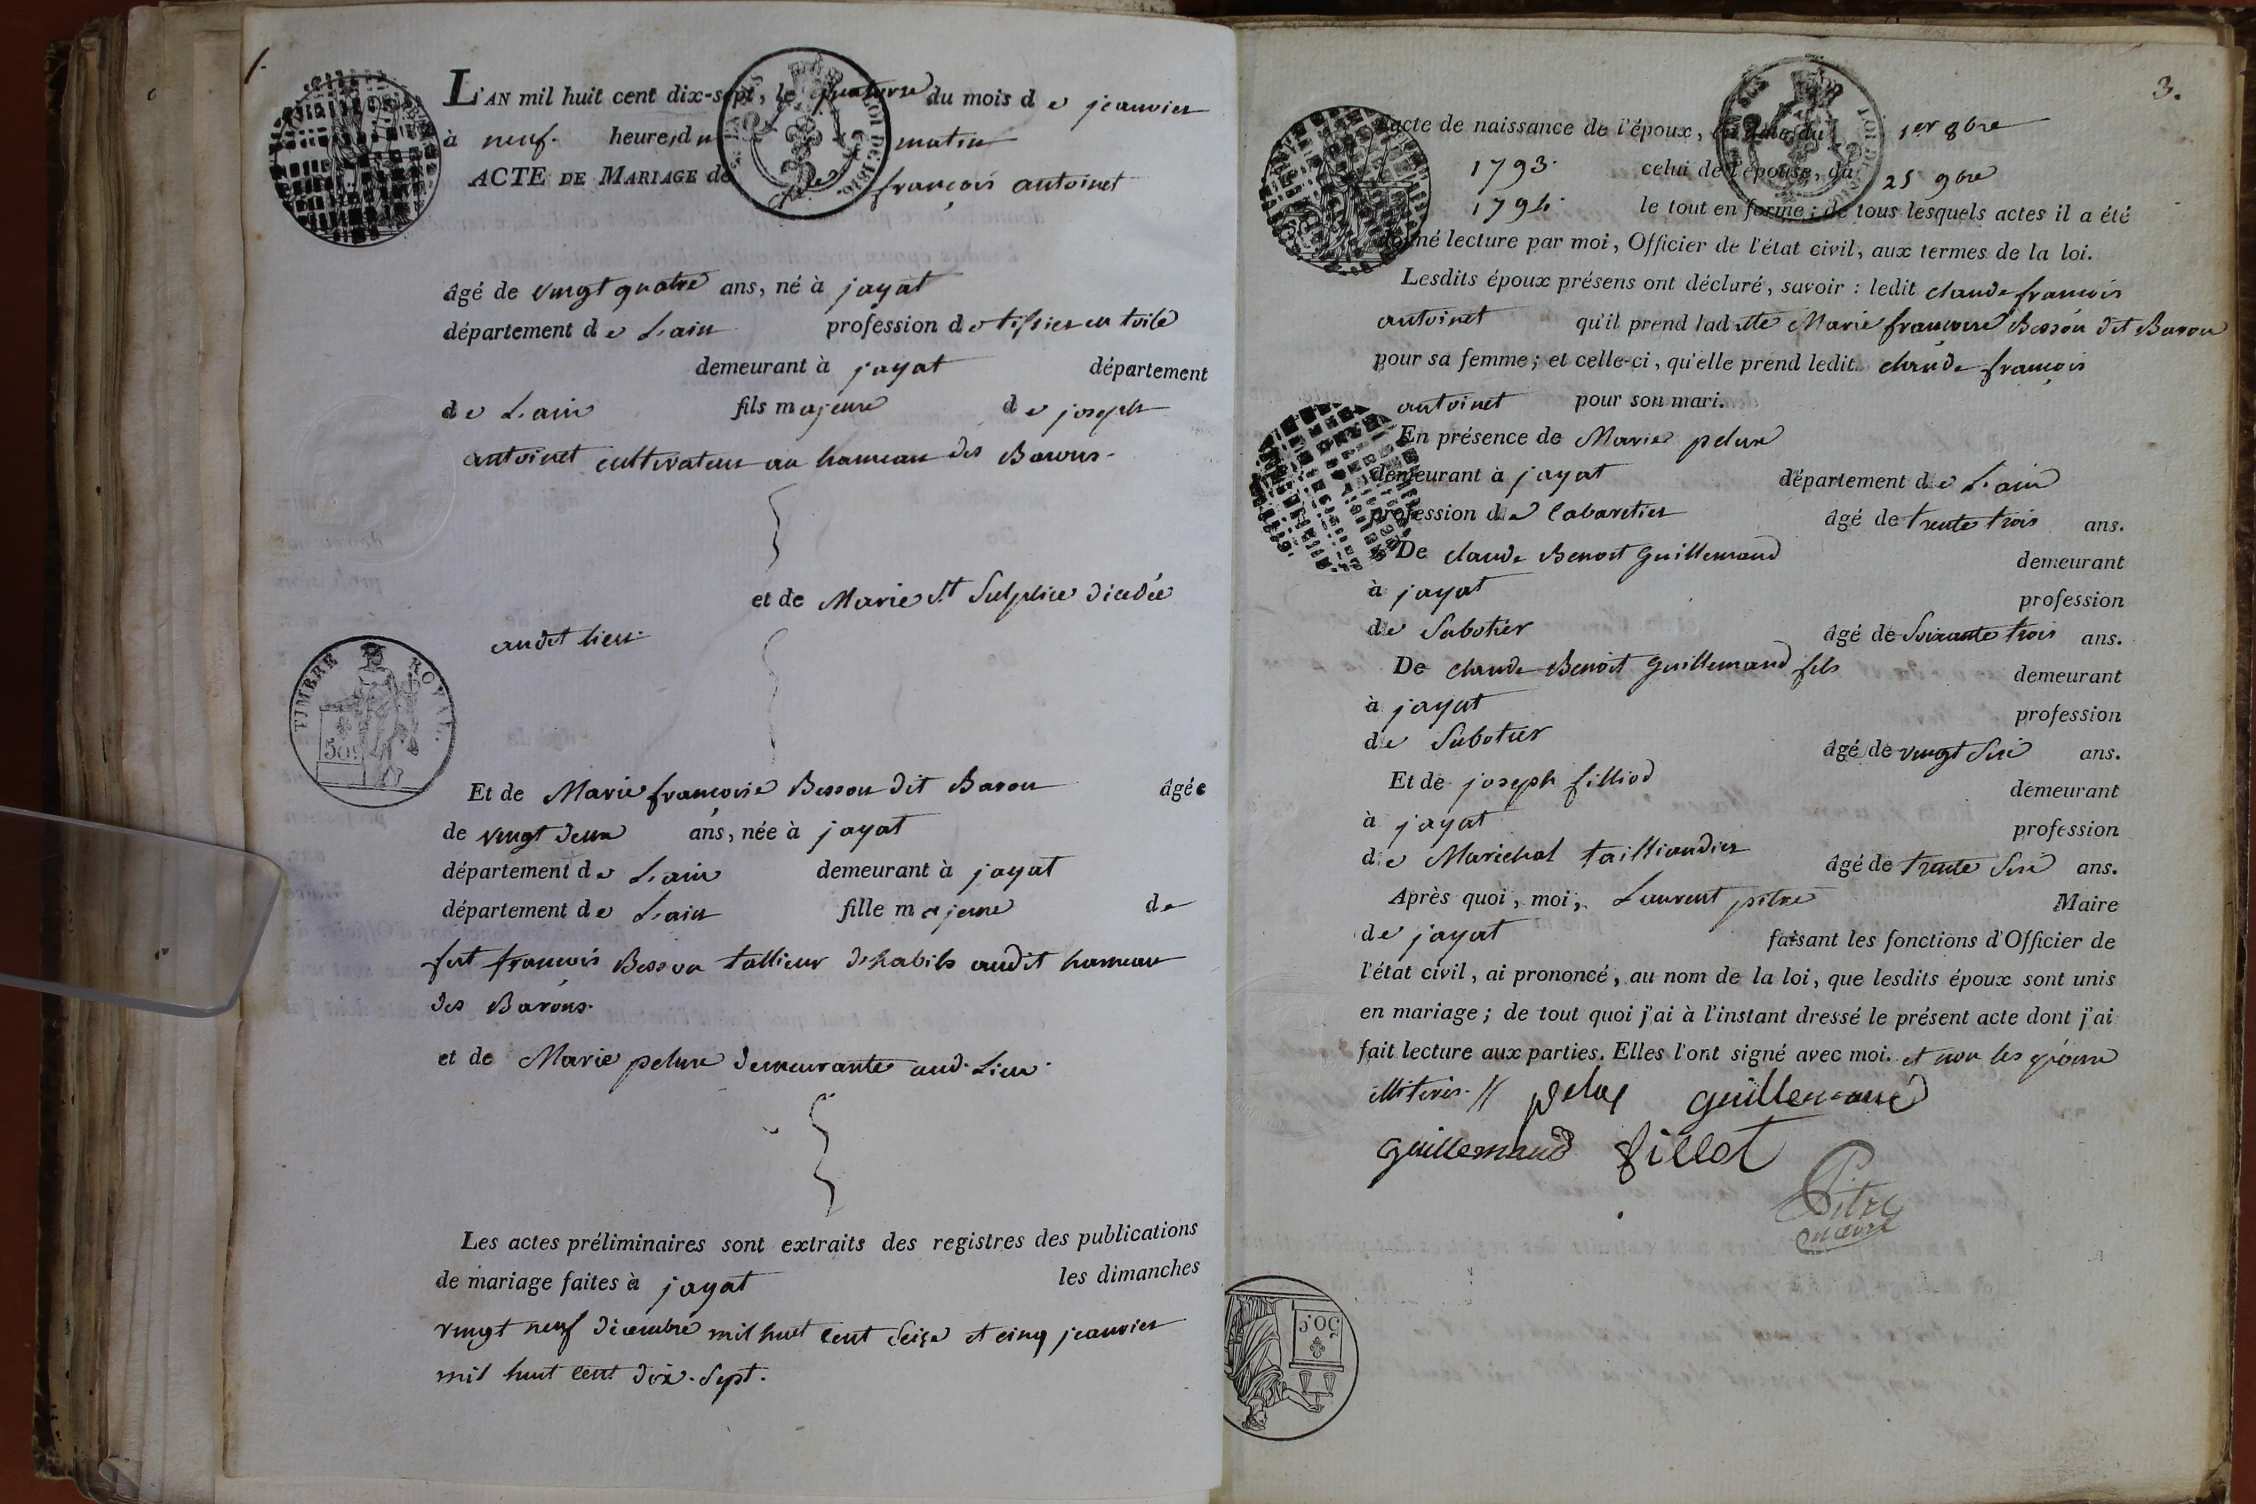 1.
L'AN mil huit cent dix-sept, le quatorse du mois de jeanvier
à neuf heures du matin
ACTE DE MARIAGE de françois antoinet
LOI DE 1816.
âgé de vingt quatre ans, né à jayat
département de L'ain profession de tissier en toile
demeurant à jayat département
de L'ain fils majeure de joseph
antoinet cultivateur au hameau des Barons.
et de Marie St Sulplice dicedée
audit lieu.
TIMBRE ROYAL.
50c
Et de Marie françoise Besson dit Baron âgée
de vingt deux ans, née à jayat
département de L'ain demeurant à jayat
département de L'ain fille majeure de
fut françois Besson tallieur d'habils audit hameau
des Barons.
et de Marie pelux demeurante aud. Lieu.
Les actes préliminaires sont extraits des registres des publications
de mariage faites à jayat les dimanches
vingt neuf dicembre mil huit cent seize et cinq jeanvier
mil huit cent dix-sept.
3.
acte de naissance de l'époux, du 1er 8bre
1793. celui de l'épouse, du 25 9bre
1794. le tout en forme : de tous lesquels actes il a été
donné lecture par moi, Officier de l'état civil, aux termes de la loi.
Lesdits époux présens ont déclaré, savoir : ledit claude françois
antoinet qu'il prend laditte Marie françoise Besson dit Baron
pour sa femme ; et celle-ci, qu'elle prend ledit claude françois
antoinet pour son mari.
En présence de Marie pelux
demeurant à jayat département de L'ain
profession de Cabaretier âgé de trente trois ans.
De claude Benoit guillemaud demeurant
à jayat profession
de Sabotier âgé de Soixante trois ans.
De claude Benoit guillemaud fils demeurant
à jayat profession
de Sabotier âgé de vingt Six ans.
Et de joseph filliod demeurant
à jayat profession
de Marichal tailliandier âgé de trente Six ans.
Après quoi, moi, Laurent pitre Maire
de jayat faisant les fonctions d'Officier de
l'état civil, ai prononcé, au nom de la loi, que lesdits époux sont unis
en mariage ; de tout quoi j'ai à l'instant dressé le présent acte dont j'ai
fait lecture aux parties. Elles l'ont signé avec moi. et non les époux
illiteris. // pelux guillemaud
guillemaud fillot
Pitre
maire
50c